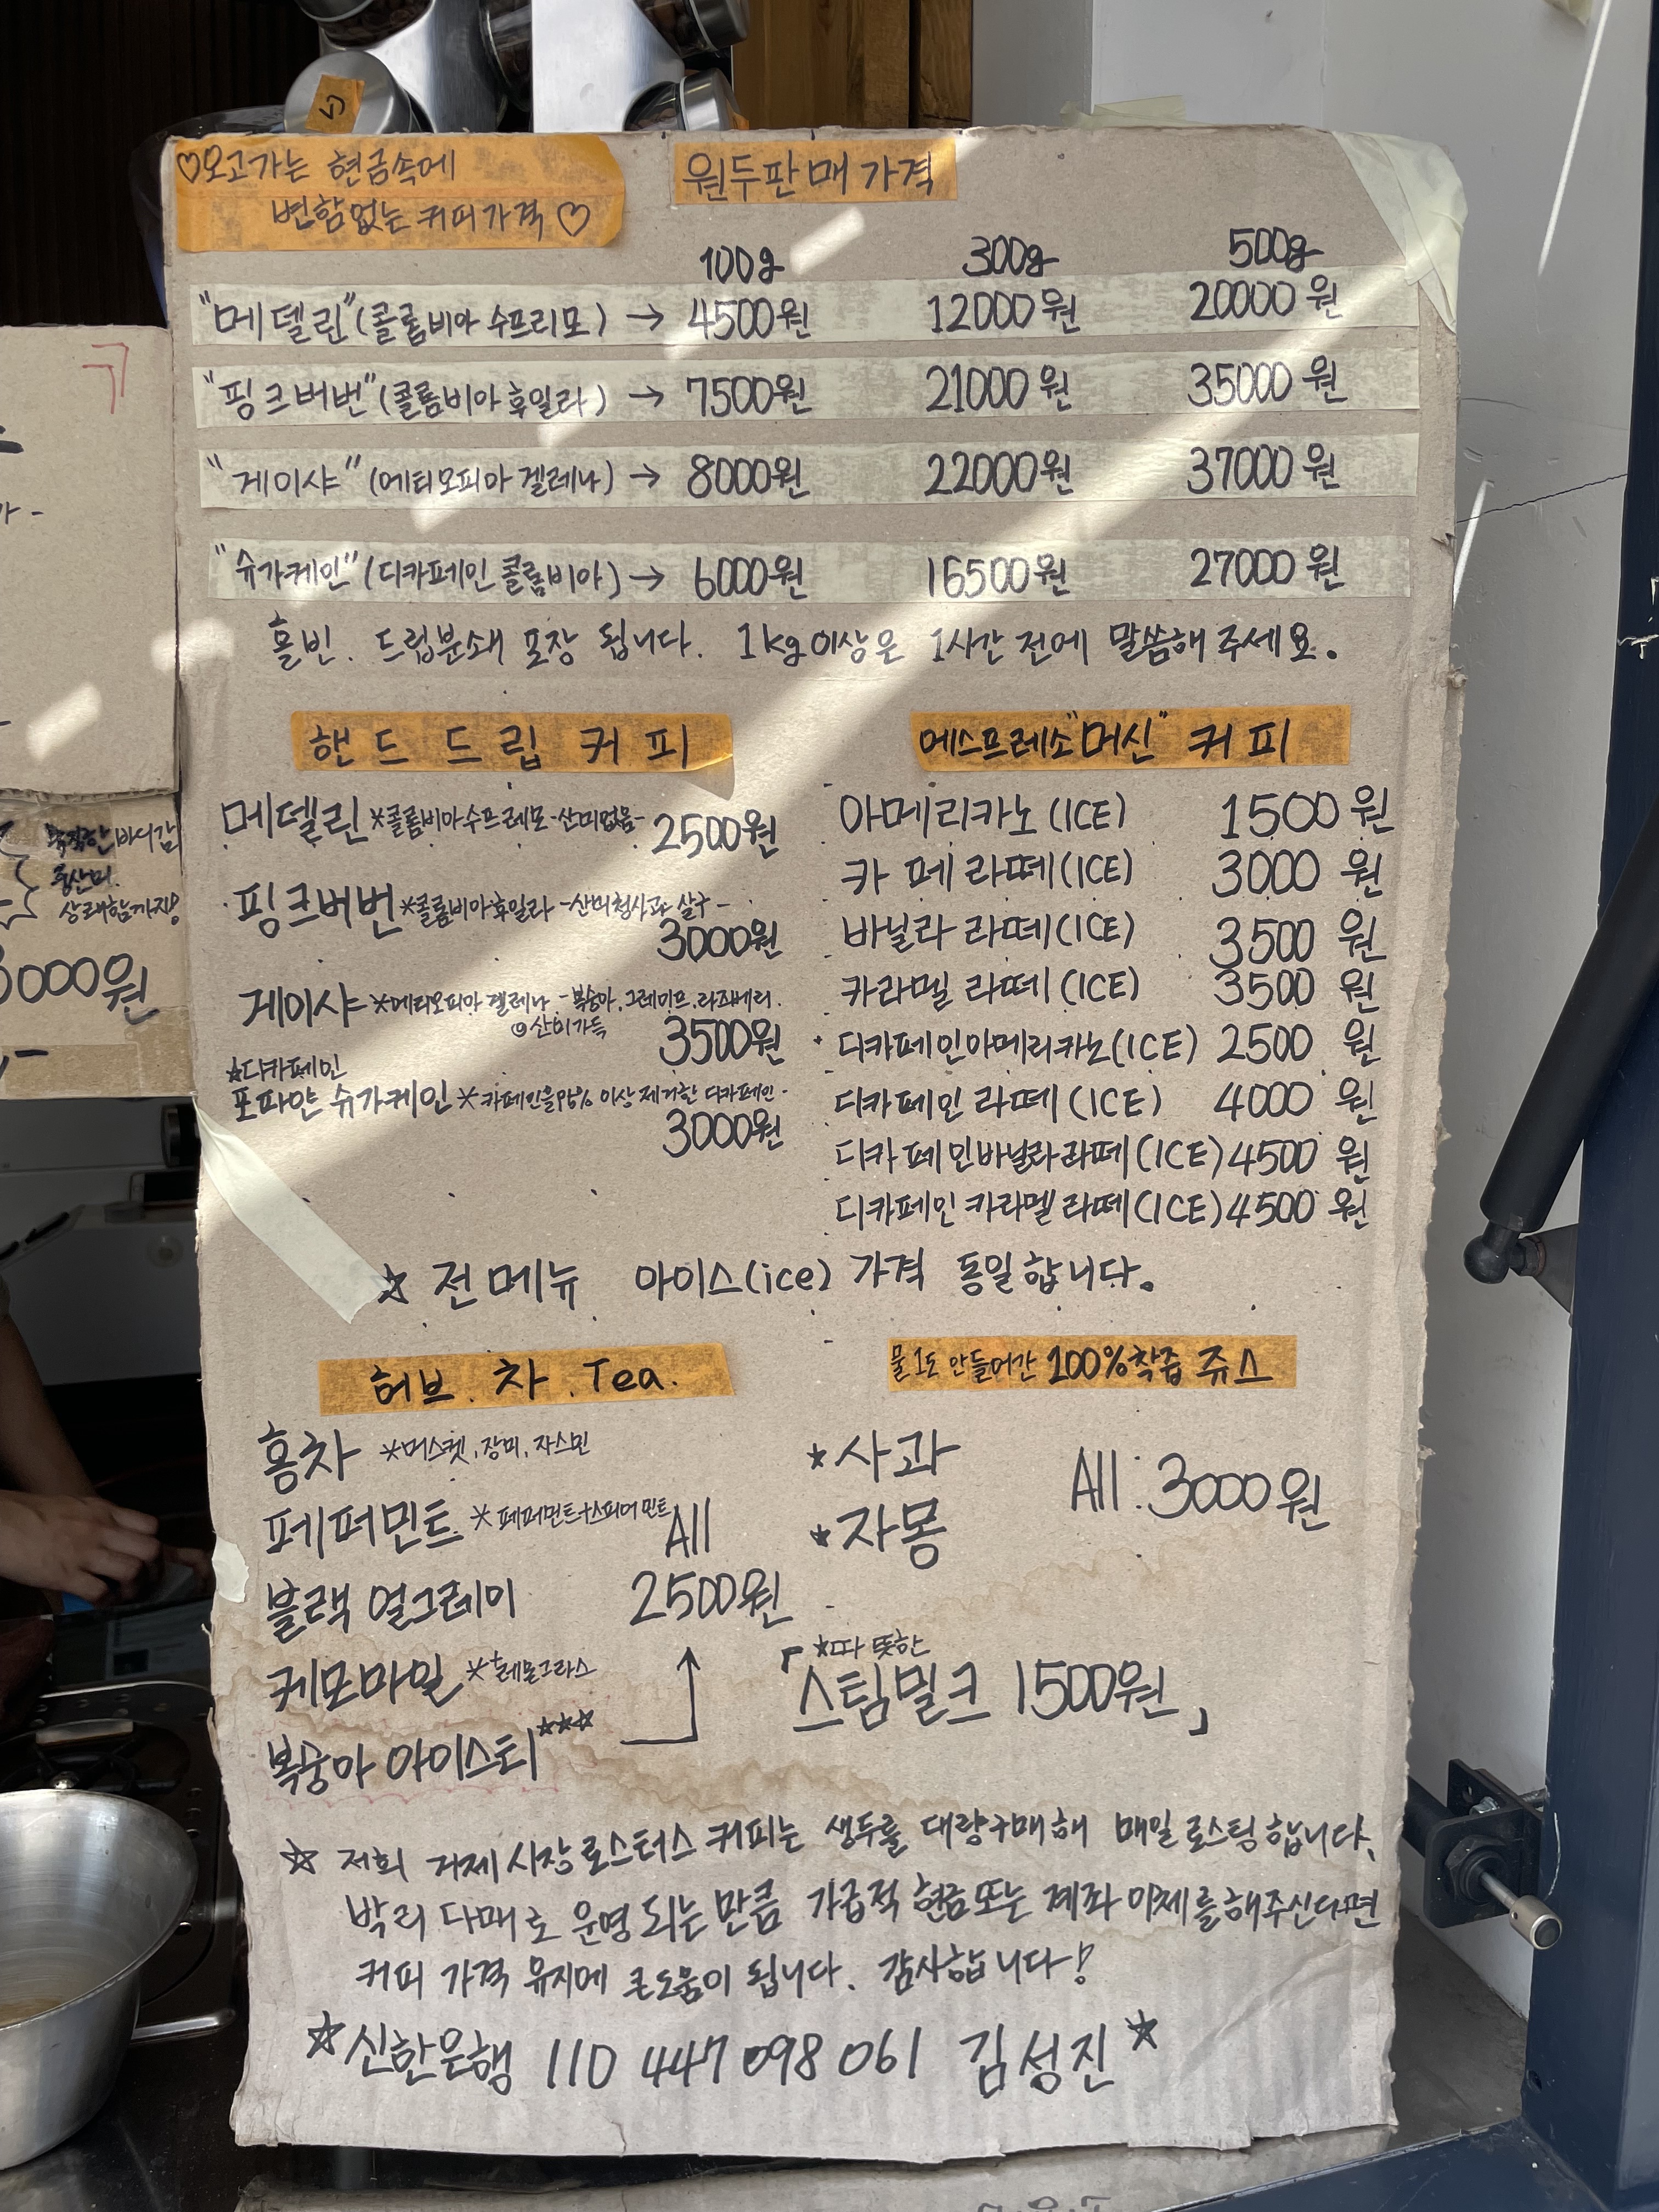 ♡오고가는 현금속에
변함없는 커피가격♡
원두판매가격
100g 300g 500g
"메델린"(콜롬비아 수프리모) → 4500원 12000원 20000원
"핑크버번"(콜롬비아 후일라) → 7500원 21000원 35000원
"게이샤"(에티오피아 겔레나) → 8000원 22000원 37000원
"슈가케인"(디카페인 콜롬비아) → 6000원 16500원 27000원
홀빈. 드립분쇄 포장 됩니다. 1kg이상은 1시간 전에 말씀해 주세요.
핸드드립커피
메델린 *콜롬비아수프레모-산미없음-
2500원
핑크버번 *콜롬비아후일라 -산미청사과 살구-
3000원
게이샤 *에티오피아 겔레나 -복숭아.그레이프.라즈베리.
◎산미가득
3500원
☆디카페인
포파얀 슈가케인 *카페인을 % 이상 제거한 디카페인-
3000원
에스프레소"머신" 커피
아메리카노(ICE) 1500원
카페라떼(ICE) 3000원
바닐라 라떼(ICE) 3500원
카라멜 라떼(ICE) 3500원
디카페인아메리카노(ICE) 2500원
디카페인 라떼(ICE) 4000원
디카페인바닐라라떼(ICE) 4500원
디카페인 카라멜 라떼(ICE) 4500원
☆ 전메뉴 아이스(ice) 가격 동일합니다.
허브.차.Tea.
홍차 *머스켓.장미.자스민
페퍼민트 *페퍼민트+스피어민트
블랙 얼그레이
케모마일 *+레몬그라스
복숭아 아이스티☆☆☆
All
2500원
물1도 안들어간 100%착즙 쥬스
☆사과
☆자몽
All : 3000원
「☆따뜻한
스팀밀크 1500원」
☆ 저희 거제시장로스터스 커피는 생두를 대량구매해 매일 로스팅합니다.
박리다매로 운영되는만큼 가급적 현금또는 계좌이체를해주신다면
커피 가격 유지에 큰도움이 됩니다. 감사합니다!
☆신한은행 110 447 098 061 김성진☆
바디감
중산미.
3000원